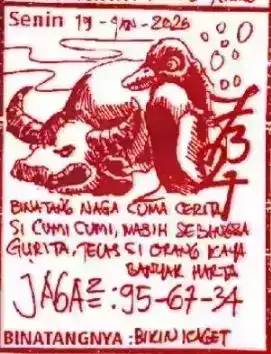 Senin 19 - JAN - 2026
73
4
BINATANG NAGA CUMA CERITA
SI CUMI CUMI, MASIH SEBANGSA
GURITA, JELAS SI ORANG KAYA
BANYAK HARTA
JAGA2 : 95-67-34
BINATANGNYA : BIKIN KAGET